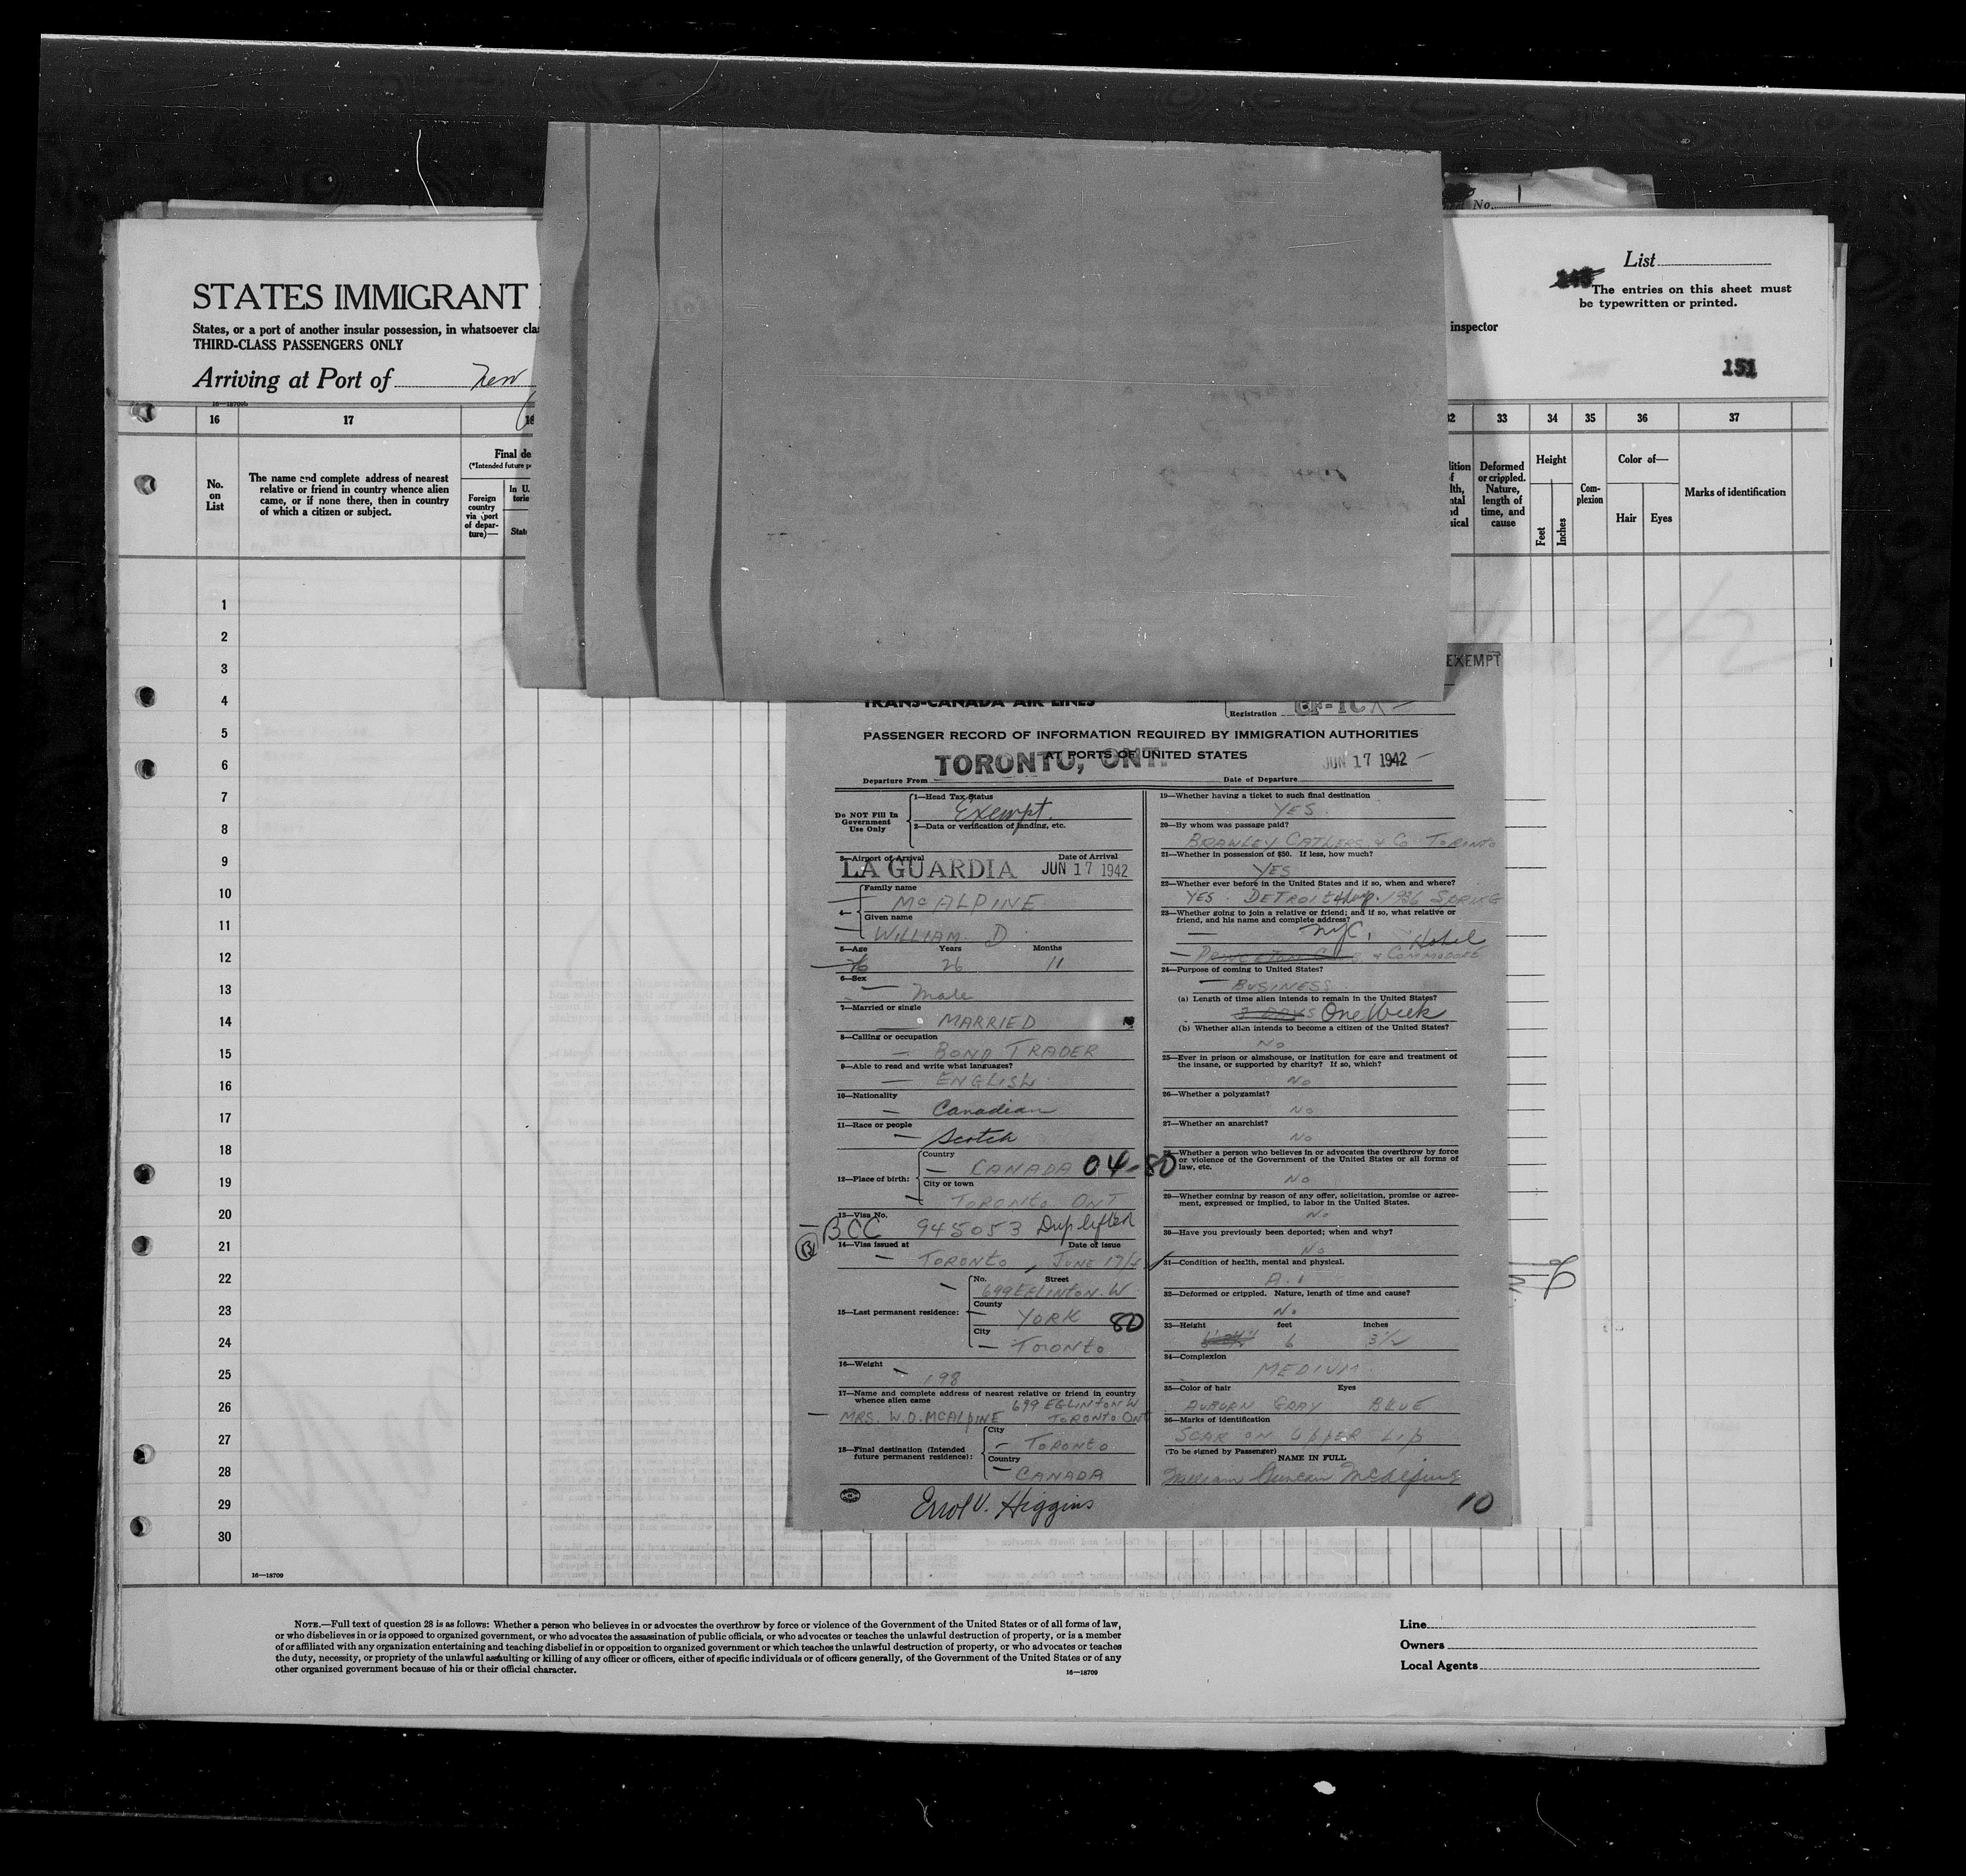 No. 1
STATES IMMIGRANT
States, or a port of another insular possession, in whatsoever
THIRD-CLASS PASSENGERS ONLY
Arriving at Port of New
16—18709b
List
The entries on this sheet must
be typewritten or printed.
inspector
151
16
17
33
34
35
36
37
No.
on
List
The name and complete address of nearest
relative or friend in country whence alien
came, or if none there, then in country
of which a citizen or subject.
Final de
(*Intended future p
Foreign
country
via (port
of depar-
ture)—
In U.
Deformed
or crippled.
Nature,
length of
time, and
cause
Height
Feet
Inches
Com-
plexion
Color of—
Hair
Eyes
Marks of identification
1
2
3
4
5
6
7
8
9
10
11
12
13
14
15
16
17
18
19
20
21
22
23
24
25
26
27
28
29
30
16—18709
EXEMPT
TRANS-CANADA AIR LINES
Registration CF-TCX
PASSENGER RECORD OF INFORMATION REQUIRED BY IMMIGRATION AUTHORITIES
AT PORTS OF UNITED STATES
Departure From TORONTO, ONT.
Date of Departure JUN 17 1942
Do NOT Fill In
Government
Use Only
1—Head Tax Status
Exempt.
2—Data or verification of landing, etc.
3—Airport of Arrival
Date of Arrival
LA GUARDIA JUN 17 1942
4—
Family name
McALPINE
Given name
WILLIAM. D.
5—Age
Years
Months
26
11
6—Sex
Male
7—Married or single
MARRIED
8—Calling or occupation
BOND TRADER
9—Able to read and write what languages?
ENGLISH
10—Nationality
Canadian
11—Race or people
Scotch
12—Place of birth:
Country
CANADA 04-80
City or town
TORONTO ONT
13—Visa No.
BCC 945053 Dup lifted
14—Visa issued at
Date of issue
TORONTO, JUNE 17/
15—Last permanent residence:
No.
Street
699 EGLINTON. W
County
YORK 80
City
TORONTO
16—Weight
198
17—Name and complete address of nearest relative or friend in country
whence alien came
699 EGLINTON W
MRS. W.D. MCALPINE TORONTO. ONT
18—Final destination (Intended
future permanent residence):
City
TORONTO
Country
CANADA
Errol V. Higgins
19—Whether having a ticket to such final destination
YES
20—By whom was passage paid?
BRAWLEY CATHERS & Co. TORONTO
21—Whether in possession of $50. If less, how much?
YES
22—Whether ever before in the United States and if so, when and where?
YES. DETROIT 1936 SPRING
23—Whether going to join a relative or friend; and if so, what relative or
friend, and his name and complete address?
NYC, Hotel
PRINCETON CLUB & COMMODORE
24—Purpose of coming to United States?
BUSINESS
(a) Length of time alien intends to remain in the United States?
3 DAYS One Week
(b) Whether alien intends to become a citizen of the United States?
No
25—Ever in prison or almshouse, or institution for care and treatment of
the insane, or supported by charity? If so, which?
No
26—Whether a polygamist?
No
27—Whether an anarchist?
No
28—Whether a person who believes in or advocates the overthrow by force
or violence of the Government of the United States or all forms of
law, etc.
No
29—Whether coming by reason of any offer, solicitation, promise or agree-
ment, expressed or implied, to labor in the United States.
No
30—Have you previously been deported; when and why?
No
31—Condition of health, mental and physical.
A. 1
32—Deformed or crippled. Nature, length of time and cause?
No
33—Height
feet
inches
6
3½
34—Complexion
MEDIUM
35—Color of hair
Eyes
AUBURN GRAY BLUE
36—Marks of identification
SCAR ON UPPER LIP
(To be signed by Passenger)
NAME IN FULL
William Duncan McAlpine
10
NOTE.—Full text of question 28 is as follows: Whether a person who believes in or advocates the overthrow by force or violence of the Government of the United States or of all forms of law,
or who disbelieves in or is opposed to organized government, or who advocates the assassination of public officials, or who advocates or teaches the unlawful destruction of property, or is a member
of or affiliated with any organization entertaining and teaching disbelief in or opposition to organized government or which teaches the unlawful destruction of property, or who advocates or teaches
the duty, necessity, or propriety of the unlawful assaulting or killing of any officer or officers, either of specific individuals or of officers generally, of the Government of the United States or of any
other organized government because of his or their official character.
16—18709
Line
Owners
Local Agents